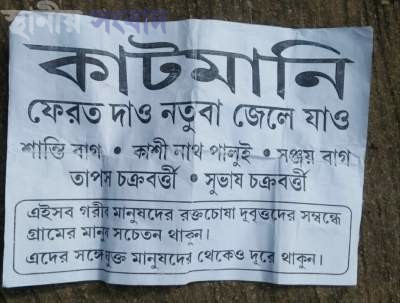 স্থানীয় সংবাদ
কাটমানি
ফেরত দাও নতুবা জেলে যাও
শান্তি বাগ • কাশী নাথ পালুই • সঞ্জয় বাগ
তাপস চক্রবর্ত্তী • সুভাষ চক্রবর্ত্তী
এইসব গরীব মানুষদের রক্তচোষা দুবৃত্তদের সম্বন্ধে
গ্রামের মানুষ সচেতন থাকুন।
এদের সঙ্গেযুক্ত মানুষদের থেকেও দূরে থাকুন।